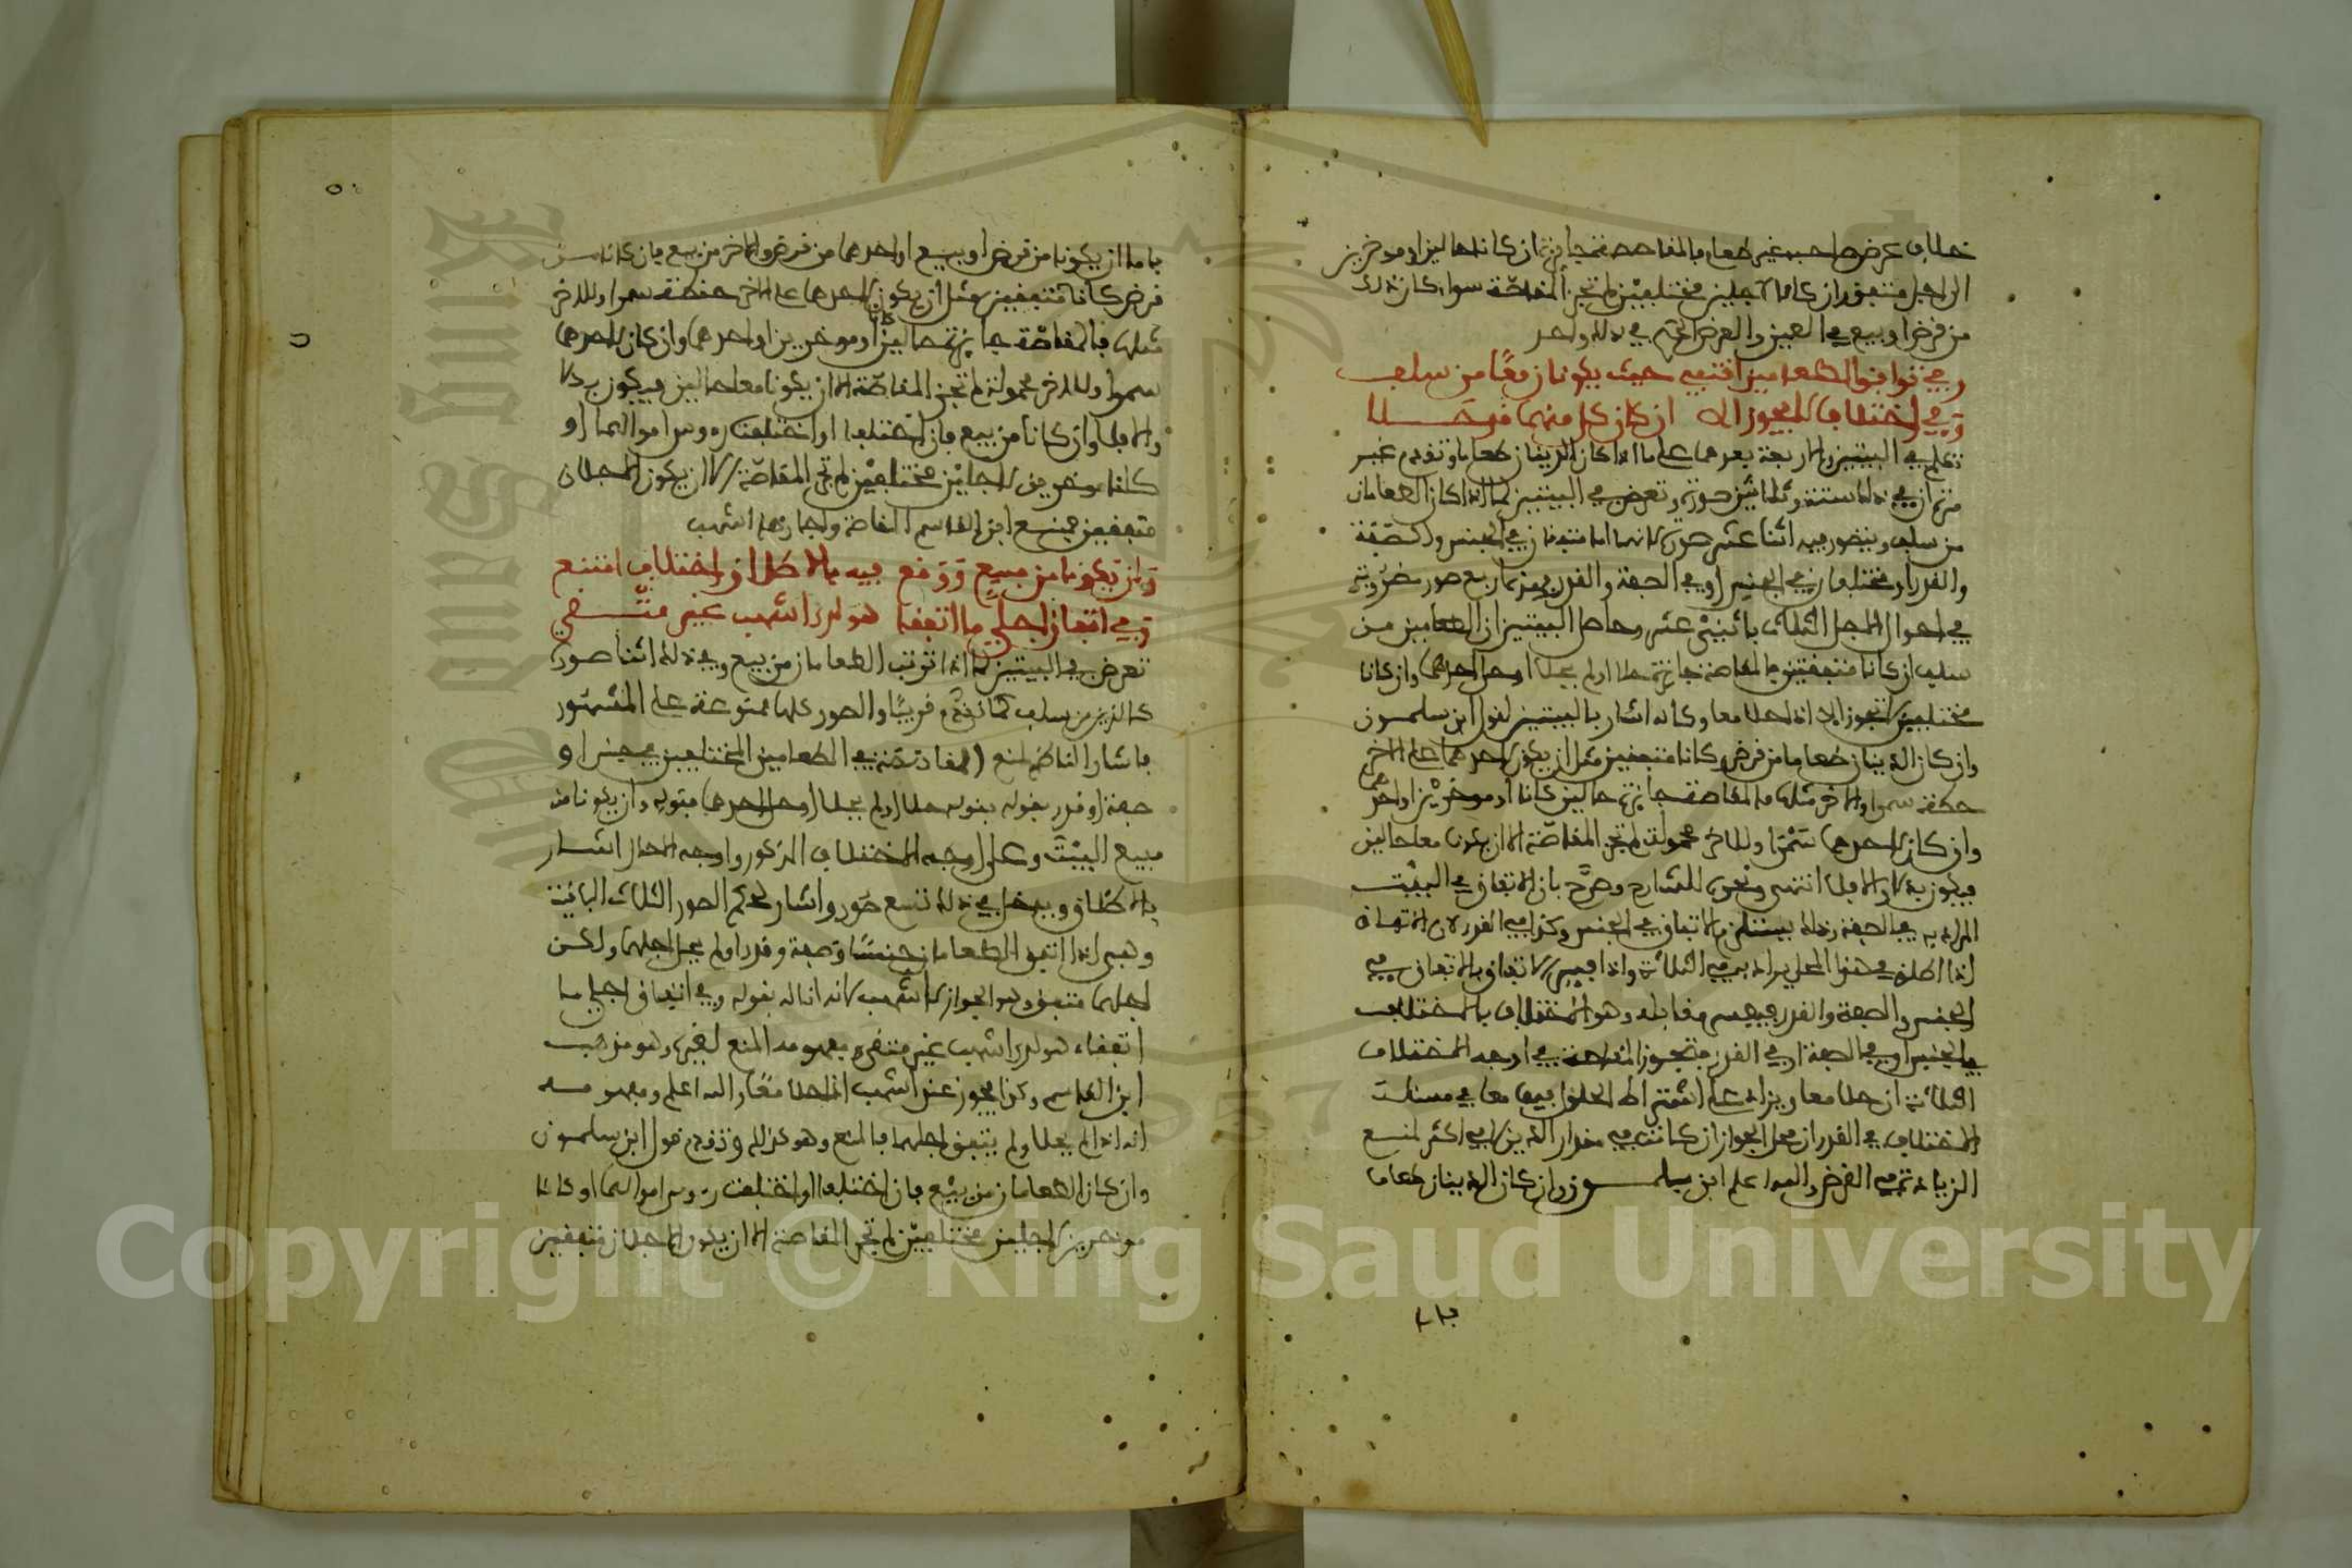 خلاف عرض احب غير طعام فالمقاصة تجايزة ان كانا حالين او موخرين
الى اجل متفق وان كانا لاجلين مختلفين لم تجز المقاصة سواء كان ذلك
من قرض او بيع في العين والعرض الحكم في ذلك واحد
وفي توافق الطعامين اقتفي حيث يكونان معا من سلف
وفي اختلاف لا يجوز الا ان كان كل منهما قد حلا
تكلم في البيتين والاربعة بعدهما على ما اذا كان الدينان طعاما وتقدم غير
مرة ان في ذلك ستة وثلاثين صورة وتعرض في البيتين لما اذا كان الطعامان
من سلف ويتصور فيه اثنا عشر صورة لانهما اما متفقان في الجنس والصفة
والقدر او مختلفان في الجنس او في الصفة والقدر فهذه اربع صور مضروبة
في احوال الاجل الثلاث باثني عشر وحاصل البيتين ان الطعامين من
سلف ان كانا متفقين فالمقاصة جائزة حلا او لم يحلا او حل احدهما وان كانا
مختلفين لا تجوز الا اذا حلا معا وكانه اشار بالبيتين لقول ابن سلمون
وان كان الدينان طعاما من قرض وكانا متفقين مثل ان يكون لاحدهما على الاخر
حنطة سمرا وللاخر مثلها فالمقاصة جائزة حالين كانا او موخرين او احدهما
وان كان لاحدهما سمرا وللاخر محمولة لم تجز المقاصة الا ان يكونا معا حالين
فيكون بدلا والا فلا انتهى ونحوه للشارح وصرح بان الاتفاق في البيت
المراد به في الصفة وذلك يستلزم الاتفاق في الجنس وكذا في القدر لان الاتفاق
اذا اطلق في هذا المحل يراد به في الثلاثة واذا فسر الاتفاق بالاتفاق في
الجنس والصفة والقدر فيفسر مقابله وهو الاختلاف بالاختلاف
في الجنس او في الصفة او في القدر فتجوز المقاصة في اوجه الاختلاف
الثلاثة ان حلا معا ويزاد على اشتراط الحلول فيهما معا في مسئلة
الاختلاف في القدر ان محل الجواز ان كانت في مقدار الدين لا في اكثر لمنع
الزيادة في القرض والله اعلم ابن سلمون وان كان الدينان طعاما
فا
فاما ان يكونا من قرض او بيع او احدهما من قرض والاخر من بيع فان كانا من
قرض كانا متفقين مثل ان يكون لاحدهما على الاخر حنطة سمرا وللاخر
مثلها فالمقاصة جايزة حالين كانا او موخرين او احدهما وان كان لاحدهما
سمرا وللاخر محمولة لم تجز المقاصة الا ان يكونا معا حالين فيكون بدلا
والا فلا وان كانا من بيع فان اختلفا او اختلفت رءوس اموالهما او
كانا موخرين لاجلين مختلفين لم تجز المقاصة الا ان يكون الاجلان
متفقين فمنع ابن القاسم المقاصة واجازها اشهب
وان يكونا من مبيع ووقع فيه بالاطلاق اختلاف امتنع
وفي اتفاق اجلي ما اتفقا هو لدى اشهب غير متقى
تعرض في البيتين لما اذا ترتب الطعامان من بيع وفي ذلك اثنا صورة
كالذين من سلف كما تقدم قريبا والصور كلها ممنوعة على المشهور
فاشار الناظم لمنع المقاصة في الطعامين المختلفين في جنس او
صفة او قدر بقوله حلا او لم يحلا او حل احدهما فقوله وان يكونا من
مبيع البيت وعلى اوجه الاختلاف المذكور واوجه الحال اشار
بالاطلاق ويدخل في ذلك تسع صور واشار لحكم الصور الثلاث الباقية
وهي اذا اتفق الطعامان جنسا وصفة وقدرا ولم يحل اجلهما ولكن
اجلهما متفق وهو الجواز لاشهب لانه اناله بقوله وفي اتفاق اجلي ما
اتفقا هو لدى اشهب غير متقى ومفهومه المنع لغيره وهو مذهب
ابن القاسم وكذا يجوز عند اشهب اذا حلا معا والله اعلم ومفهومه
انه اذا لم يحلا ولم يتفق اجلهما فالمنع وهو كذلك وتقدم قول ابن سلمون
وان كان الطعامان من بيع فان اختلفا او اختلفت رءوس اموالهما او كانا
موخرين لاجلين مختلفين لم تجز المقاصة الا ان يكون الاجلان متفقين
Copyright © King Saud University